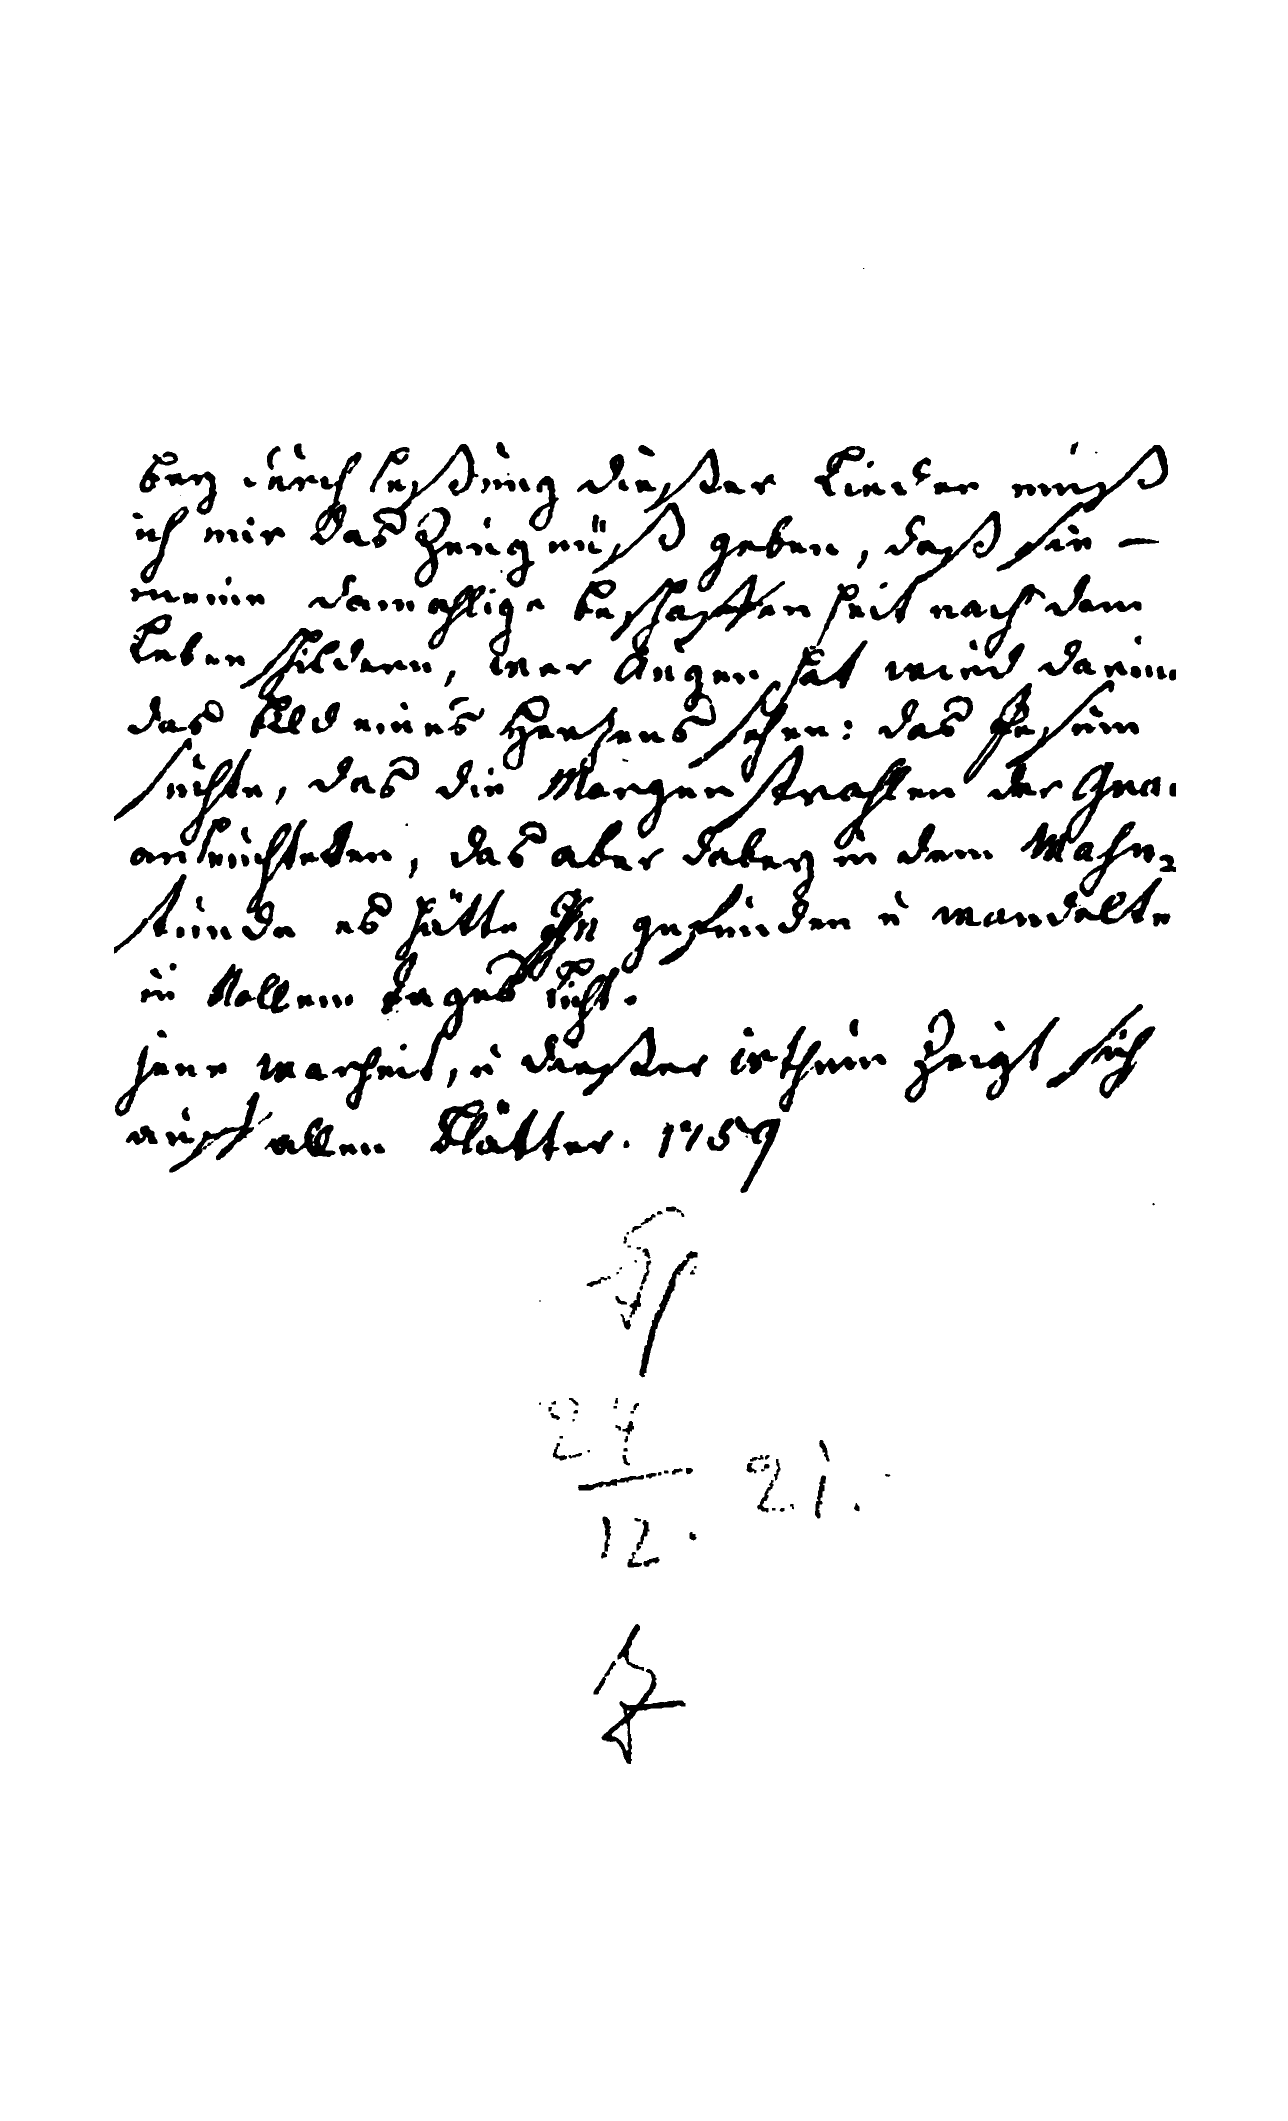 bey durch leßung dießer Lieder muß
ich mir das Zeugnüß geben, daß sie —
meine damahlige beschaffenheit nach dem
Leben schildern, wer Augen hat wird darinn
das bild eines Hertzens sehen: das Jesum
suchte, das die Morgen strahlen der Gna
anleuchteten, das aber dabey in dem Wahn
stunde es hätte Ihn gefunden u wandelte
in Vollem tages licht.
jene warheit, u dießer irthum Zeigt sich
auff allen Blätter. 1759
24
12. 21.